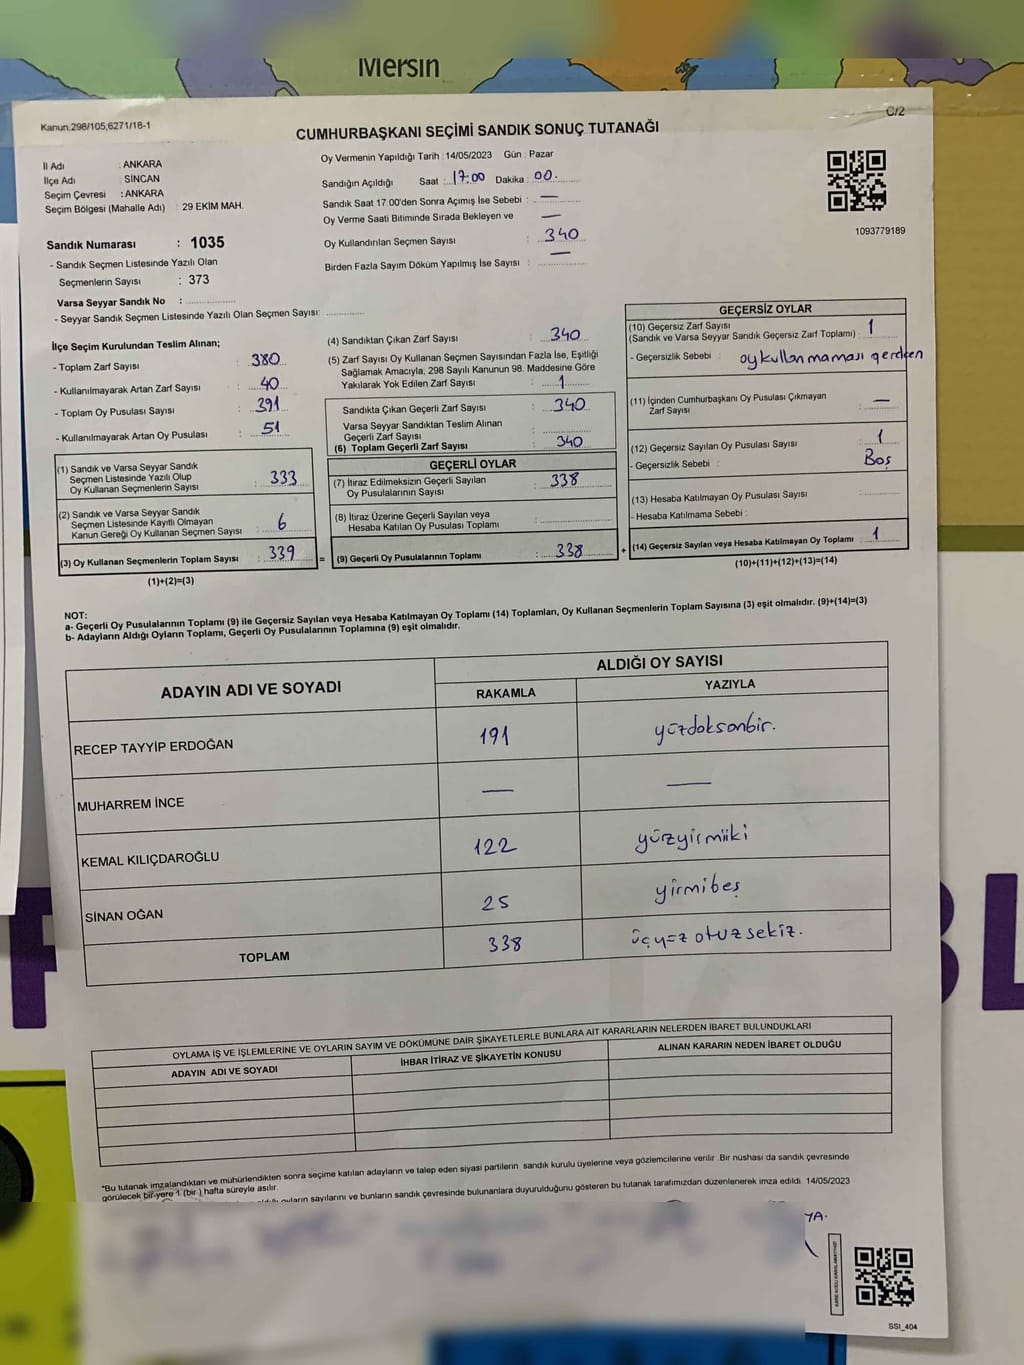 Mersin
Kanun:298/105,6271/18-1
C/2
CUMHURBAŞKANI SEÇİMİ SANDIK SONUÇ TUTANAĞI
İl Adı : ANKARA
İlçe Adı : SİNCAN
Seçim Çevresi : ANKARA
Seçim Bölgesi (Mahalle Adı) : 29 EKİM MAH.
Sandık Numarası : 1035
- Sandık Seçmen Listesinde Yazılı Olan
Seçmenlerin Sayısı : 373
Varsa Seyyar Sandık No :
- Seyyar Sandık Seçmen Listesinde Yazılı Olan Seçmen Sayısı:
Oy Vermenin Yapıldığı Tarih : 14/05/2023 Gün : Pazar
Sandığın Açıldığı Saat : 17:00 Dakika : 00.
Sandık Saat 17:00'den Sonra Açımış İse Sebebi : —
Oy Verme Saati Bitiminde Sırada Bekleyen ve —
Oy Kullandırılan Seçmen Sayısı : 340
Birden Fazla Sayım Döküm Yapılmış İse Sayısı : —
1093779189
İlçe Seçim Kurulundan Teslim Alınan;
- Toplam Zarf Sayısı : 380
- Kullanılmayarak Artan Zarf Sayısı : 40
- Toplam Oy Pusulası Sayısı : 391
- Kullanılmayarak Artan Oy Pusulası : 51
(1) Sandık ve Varsa Seyyar Sandık
Seçmen Listesinde Yazılı Olup
Oy Kullanan Seçmenlerin Sayısı : 333
(2) Sandık ve Varsa Seyyar Sandık
Seçmen Listesinde Kayıtlı Olmayan
Kanun Gereği Oy Kullanan Seçmen Sayısı : 6
(3) Oy Kullanan Seçmenlerin Toplam Sayısı : 339 =
(1)+(2)=(3)
(4) Sandıktan Çıkan Zarf Sayısı : 340
(5) Zarf Sayısı Oy Kullanan Seçmen Sayısından Fazla İse, Eşitliği
Sağlamak Amacıyla; 298 Sayılı Kanunun 98. Maddesine Göre
Yakılarak Yok Edilen Zarf Sayısı : 1
Sandıkta Çıkan Geçerli Zarf Sayısı : 340
Varsa Seyyar Sandıktan Teslim Alınan
Geçerli Zarf Sayısı :
(6) Toplam Geçerli Zarf Sayısı : 340
GEÇERLİ OYLAR
(7) İtiraz Edilmeksizin Geçerli Sayılan
Oy Pusulalarının Sayısı : 338
(8) İtiraz Üzerine Geçerli Sayılan veya
Hesaba Katılan Oy Pusulası Toplamı :
(9) Geçerli Oy Pusulalarının Toplamı : 338 +
GEÇERSİZ OYLAR
(10) Geçersiz Zarf Sayısı
(Sandık ve Varsa Seyyar Sandık Geçersiz Zarf Toplamı) : 1
- Geçersizlik Sebebi : oy kullanmaması gereken
(11) İçinden Cumhurbaşkanı Oy Pusulası Çıkmayan
Zarf Sayısı : —
(12) Geçersiz Sayılan Oy Pusulası Sayısı : 1
- Geçersizlik Sebebi : Boş
(13) Hesaba Katılmayan Oy Pusulası Sayısı :
- Hesaba Katılmama Sebebi :
(14) Geçersiz Sayılan veya Hesaba Katılmayan Oy Toplamı : 1
(10)+(11)+(12)+(13)=(14)
NOT:
a- Geçerli Oy Pusulalarının Toplamı (9) ile Geçersiz Sayılan veya Hesaba Katılmayan Oy Toplamı (14) Toplamları, Oy Kullanan Seçmenlerin Toplam Sayısına (3) eşit olmalıdır. (9)+(14)=(3)
b- Adayların Aldığı Oyların Toplamı, Geçerli Oy Pusulalarının Toplamına (9) eşit olmalıdır.
ADAYIN ADI VE SOYADI
ALDIĞI OY SAYISI
RAKAMLA YAZIYLA
RECEP TAYYİP ERDOĞAN 191 yüzdoksanbir.
MUHARREM İNCE — —
KEMAL KILIÇDAROĞLU 122 yüzyirmiiki
SİNAN OĞAN 25 yirmibeş
TOPLAM 338 üçyüz otuzsekiz.
OYLAMA İŞ VE İŞLEMLERİNE VE OYLARIN SAYIM VE DÖKÜMÜNE DAİR ŞİKAYETLERLE BUNLARA AİT KARARLARIN NELERDEN İBARET BULUNDUKLARI
ADAYIN ADI VE SOYADI İHBAR İTİRAZ VE ŞİKAYETİN KONUSU ALINAN KARARIN NEDEN İBARET OLDUĞU
*Bu tutanak imzalandıktan ve mühürlendikten sonra seçime katılan adayların ve talep eden siyasi partilerin sandık kurulu üyelerine veya gözlemcilerine verilir .Bir nüshası da sandık çevresinde
görülecek bir yere 1 (bir ) hafta süreyle asılır.
oyların sayılarını ve bunların sandık çevresinde bulunanlara duyurulduğunu gösteren bu tutanak tarafımızdan düzenlenerek imza edildi. 14/05/2023
YA.
SSI_404